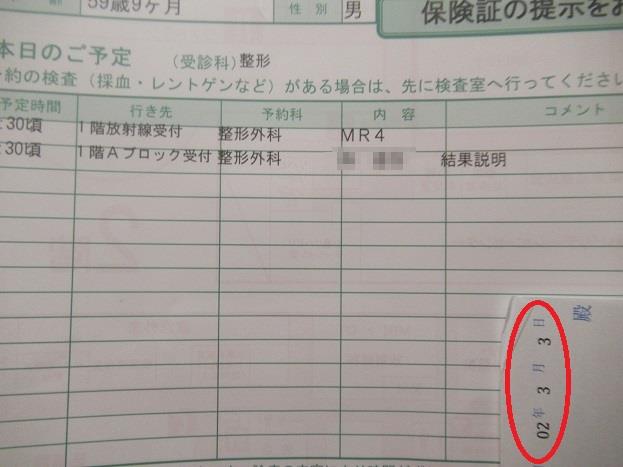 59歳9ヶ月 性別 男 保険証の提示をお
本日のご予定 (受診科) 整形
予約の検査(採血・レントゲンなど)がある場合は、先に検査室へ行ってください
予定時間 行き先 予約科 内容 コメント
:30頃 1階放射線受付 整形外科 MR4
:30頃 1階Aブロック受付 整形外科 結果説明
殿
02年 3月 3日